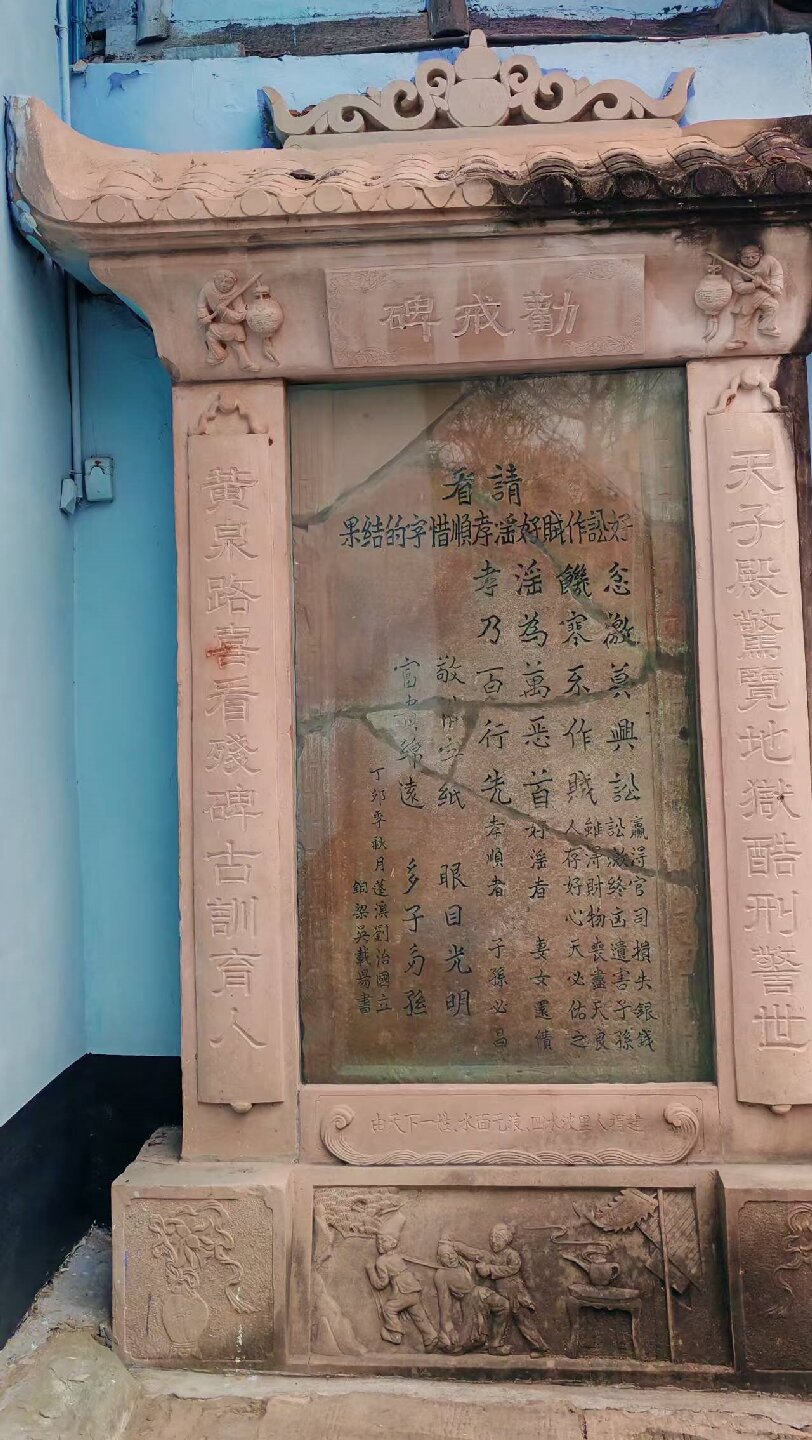 勸戒碑
天子殿驚覽地獄酷刑警世
黃泉路喜看殘碑古訓育人
請看
好訟作賊好滛孝順惜字的结果
忿激莫興訟 贏得官司損失銀錢
訟激終凶遺害子孫
饑寒不作賊 雖得財物喪盡天良
人存好心天必佑之
滛為萬惡首 好滛者 妻女還債
孝乃百行先 孝順者 子孫必昌
敬惜字紙 眼目光明
富貴綿遠 多子多孫
丁卯季秋月蓬溪劉治國立
銅梁吳載陽書
由天下一姓、水面无